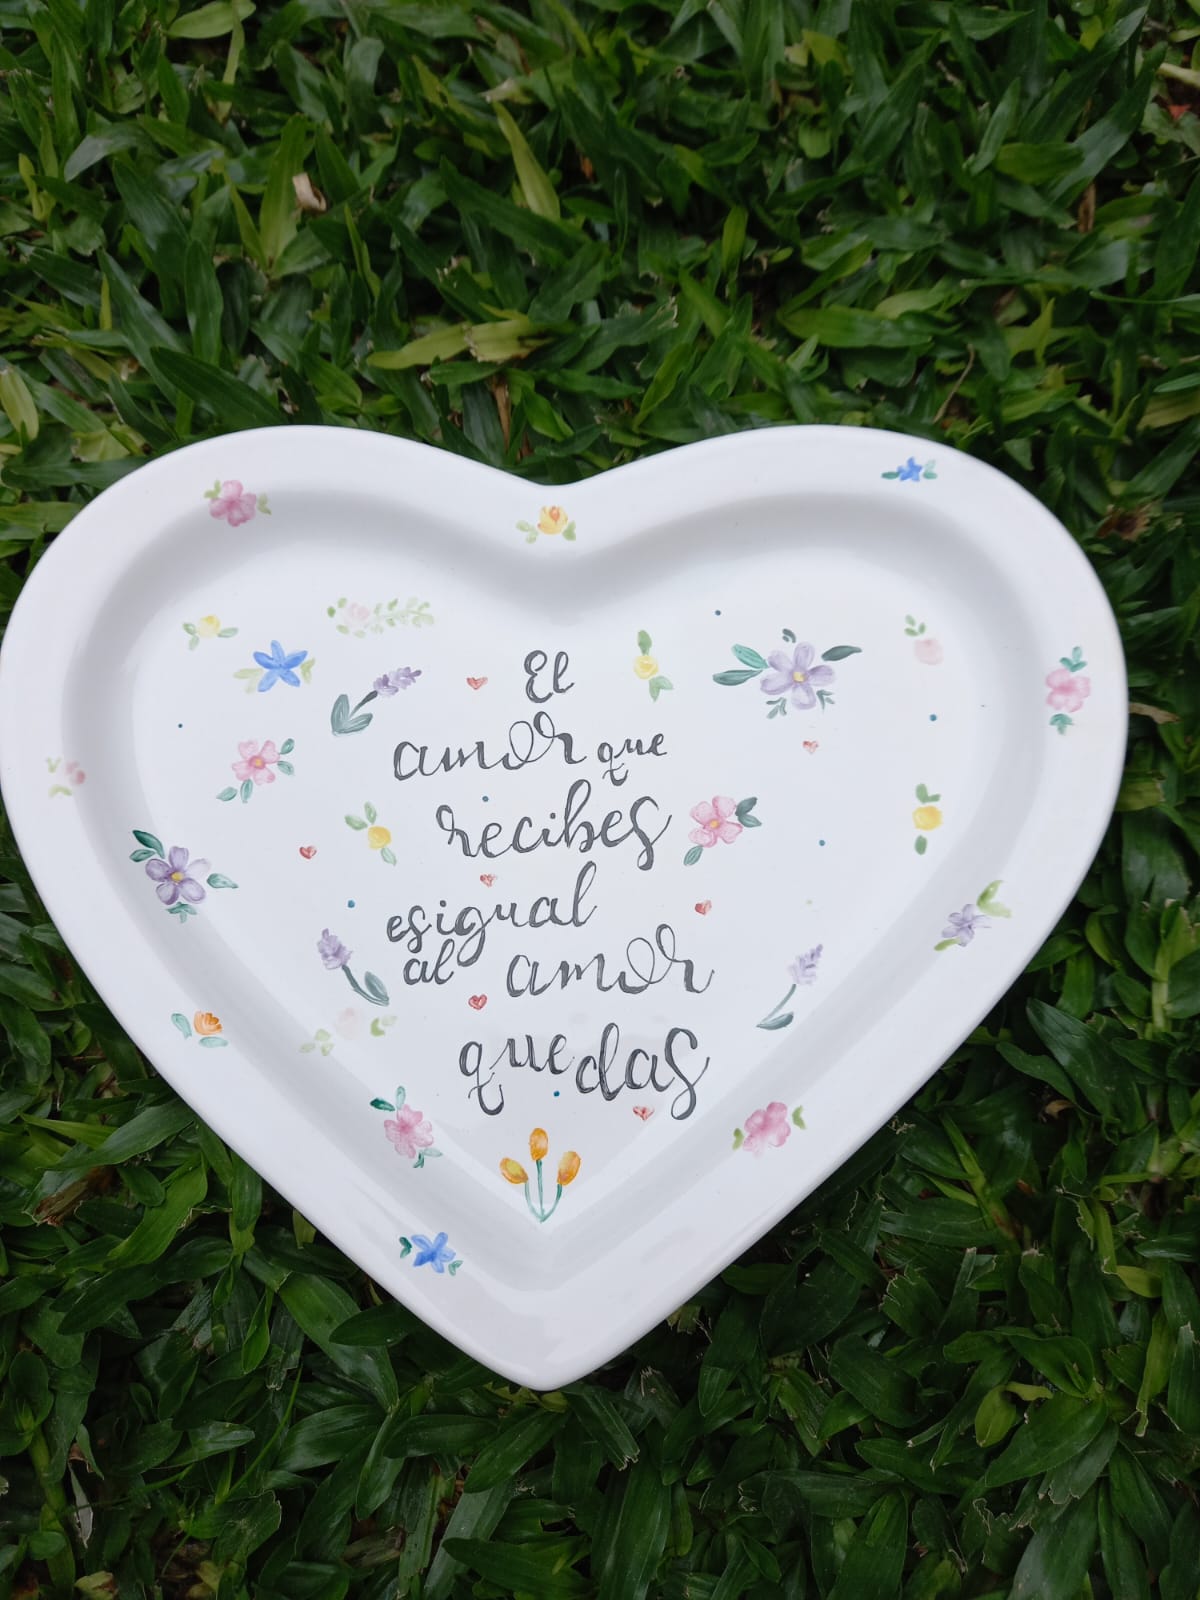 El
amor que
recibes
es igual
al amor
que das